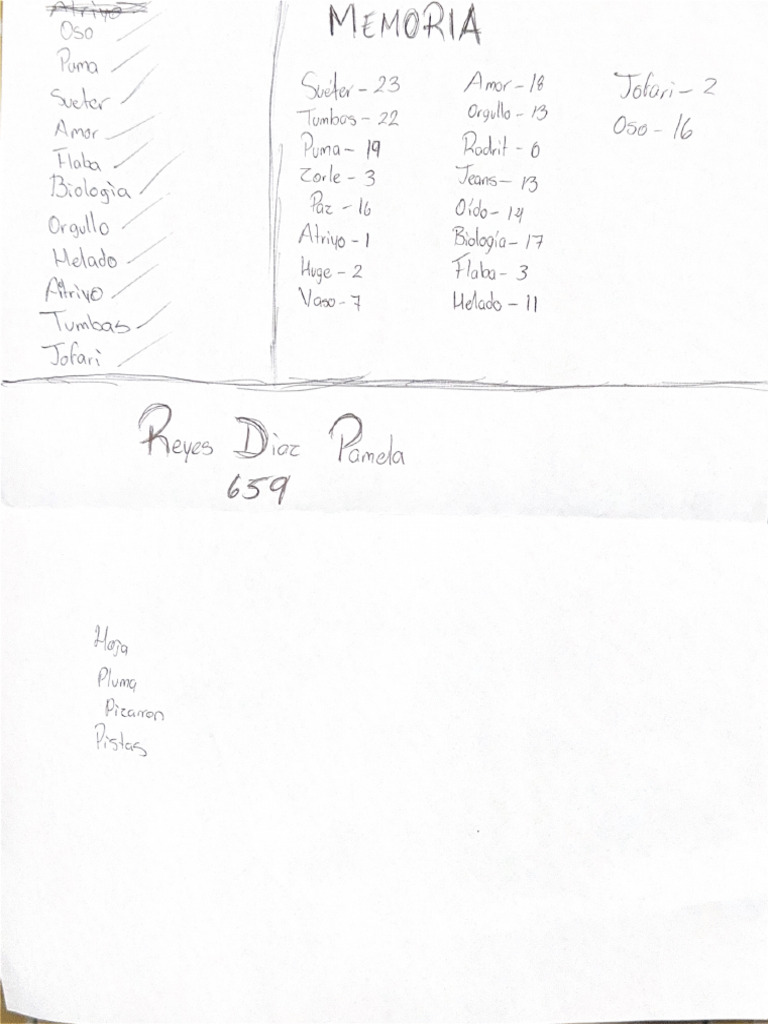 Atriyo
Oso
Puma
Sueter
Amor
Flaba
Biologia
Orgullo
Helado
Atriyo
Tumbas
Jofari
MEMORIA
Suéter - 23
Tumbas - 22
Puma - 19
Zorle - 3
Paz - 16
Atriyo - 1
Huge - 2
Vaso - 7
Amor - 18
Orgullo - 13
Rodrit - 0
Jeans - 13
Oído - 14
Biología - 17
Flaba - 3
Helado - 11
Jofari - 2
Oso - 16
Reyes Diaz Pamela
659
Hoja
Pluma
Pizarron
Pistas